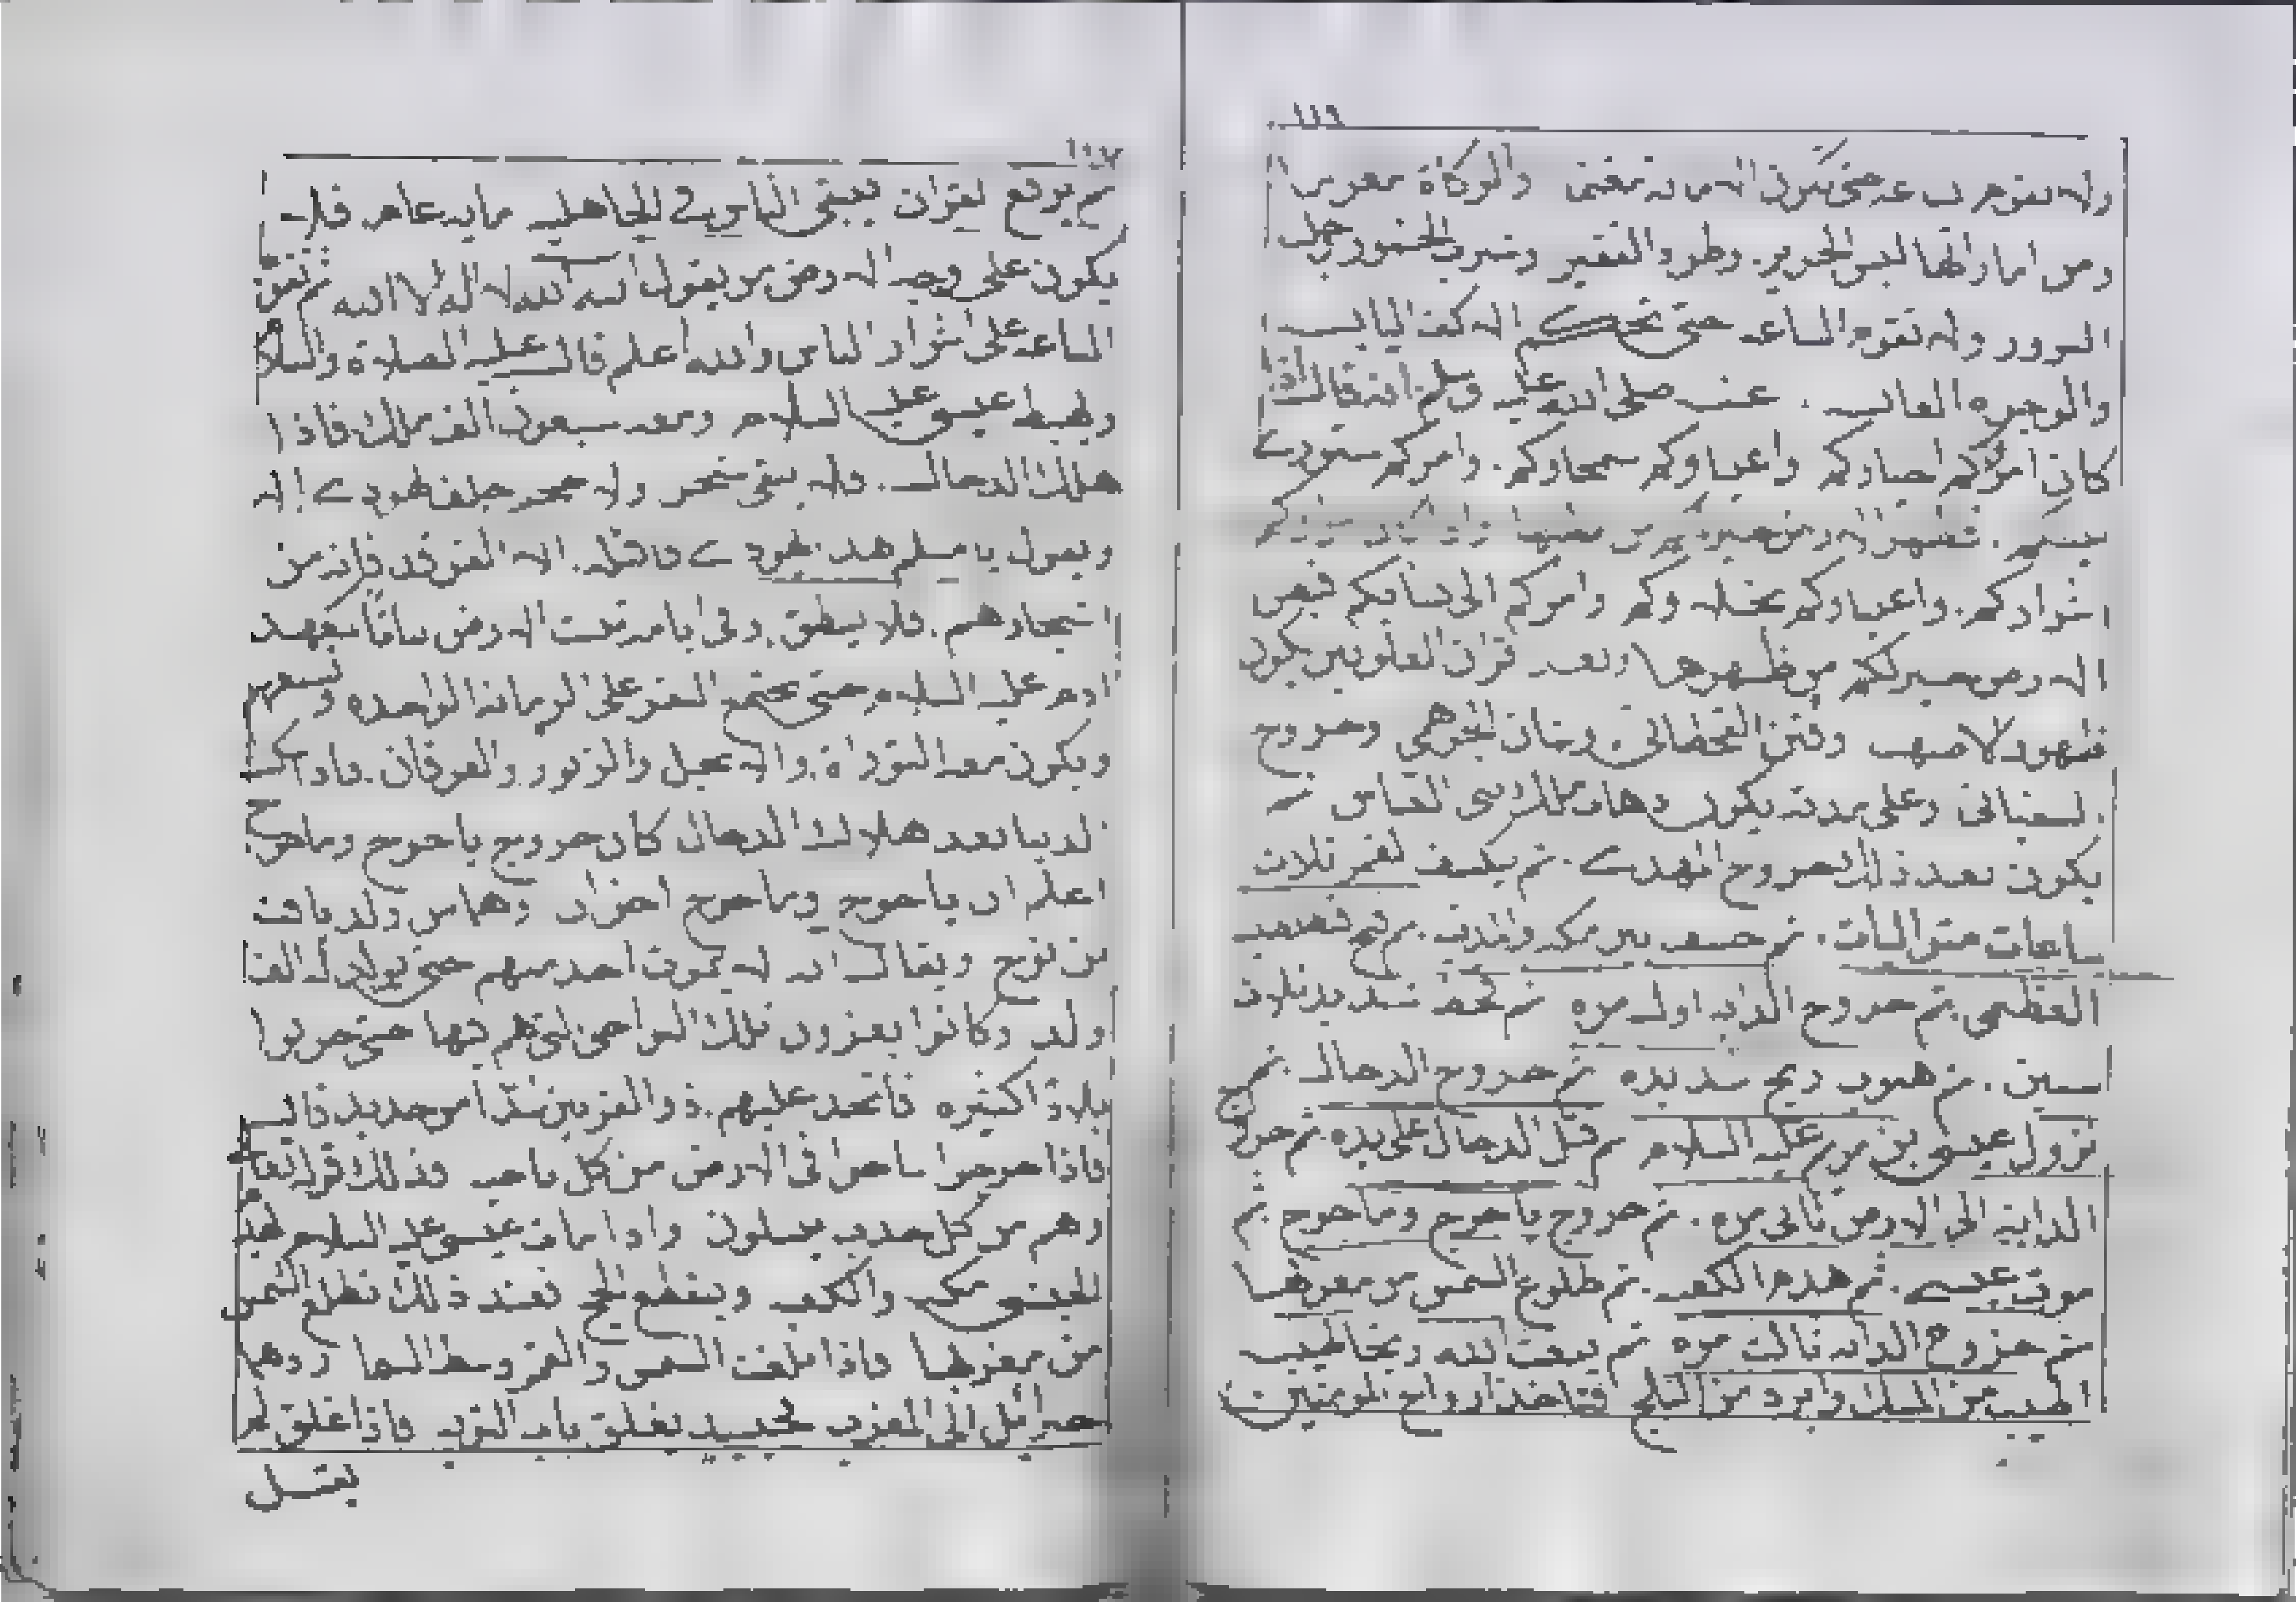 ١١٩
ولا تقوم الساعة حتى تكون الامانة مغنما والزكاة مغرما
ومن اماراتها لبس الحرير وشرب الخمور
الزور ولا تقوم الساعه حتى الاكف
والوجوه عنه صلى الله عليه وسلم انه قال اذا
كان امراوكم اخياركم واغنياوكم سمحاوكم وامركم شورى
بينكم فظهر الارض خير لكم من بطنها واذا كان امراوكم
اشراركم واغنياوكم بخلاوكم وامركم الى نسايكم فبطن
الارض خير لكم من ظهرها وبعد قران العلويين يكون
ظهور الاصهب وفتن القحطاني الجرهمي وخروج
السفياني وعلى مدته يكون ملك بني العباس
يكون بعد ذلك خروج المهدي ثم يكسف القمر ثلاث
ساعات متواليات ثم خسف بين مكه والمدينه ثم
العظمى ثم خروج الدابه اول مره ثم قحط شديد ثلاث
سنين ثم هبوب ريح شديده ثم خروج الدجال ثم
نزول عيسى بن مريم عليه السلام ثم قتل الدجال على يده ثم خروج
الدابة الى الارض ثاني مره ثم خروج ياجوج وماجوج ثم
موت عيسى ثم هدم الكعبه ثم طلوع الشمس من مغربها
ثم خروج الدابه ثالث مره ثم يبعث الله ريحا طيبه
اطيب من المسك وابرد من الثلج فتاخذ ارواح المومنين
ثم يرفع القران فيبقى الناس في الجاهليه ماية عام فلا
يكون على وجه الارض من يقول الله الله لا اله الا الله ثم تقوم
الساعه على اشرار الناس والله اعلم قال عليه الصلاة والسلام
ويهبط عيسى عليه السلام ومعه سبعون الف ملك فاذا
هلك الدجال فلا يبقى شجر ولا حجر خلفه يهودي الا
ويقول يا مسلم هذا يهودي فاقتله الا الغرقد فانه من
اشجارهم فلا ينطق وفي ايامه تنبت الارض نباتها بعهد
ادم عليه السلام حتى يجتمع النفر على الرمانه الواحده وتسعهم
ويكون معه التوراة والانجيل والزبور والفرقان فاذا
الدنيا بعد هلاك الدجال كان خروج ياجوج وماجوج
اعلم ان ياجوج وماجوج اخوان وهما من ولد يافث
بن نوح ويقال انه لا يموت احد منهم حتى يولد له الف
ولد وكانوا يغزون تلك النواحي التي هم فيها حتى خربوا
بلادا كثيره فاتخذ عليهم ذو القرنين سدا من حديد قال
فاذا خرجوا ساحوا في الارض من كل ناحيه وذلك قوله تعالى
وهم من كل حدب ينسلون واذا مات عيسى عليه السلام
مكه والكعبه وينقطع الحج فعند ذلك تطلع الشمس
من مغربها فاذا بلغت الشمس والقمر وسط السما ردهما
جبرائيل الى المغرب فحينيذ يغلق باب التوبه فاذا اغلق لم
يقبل